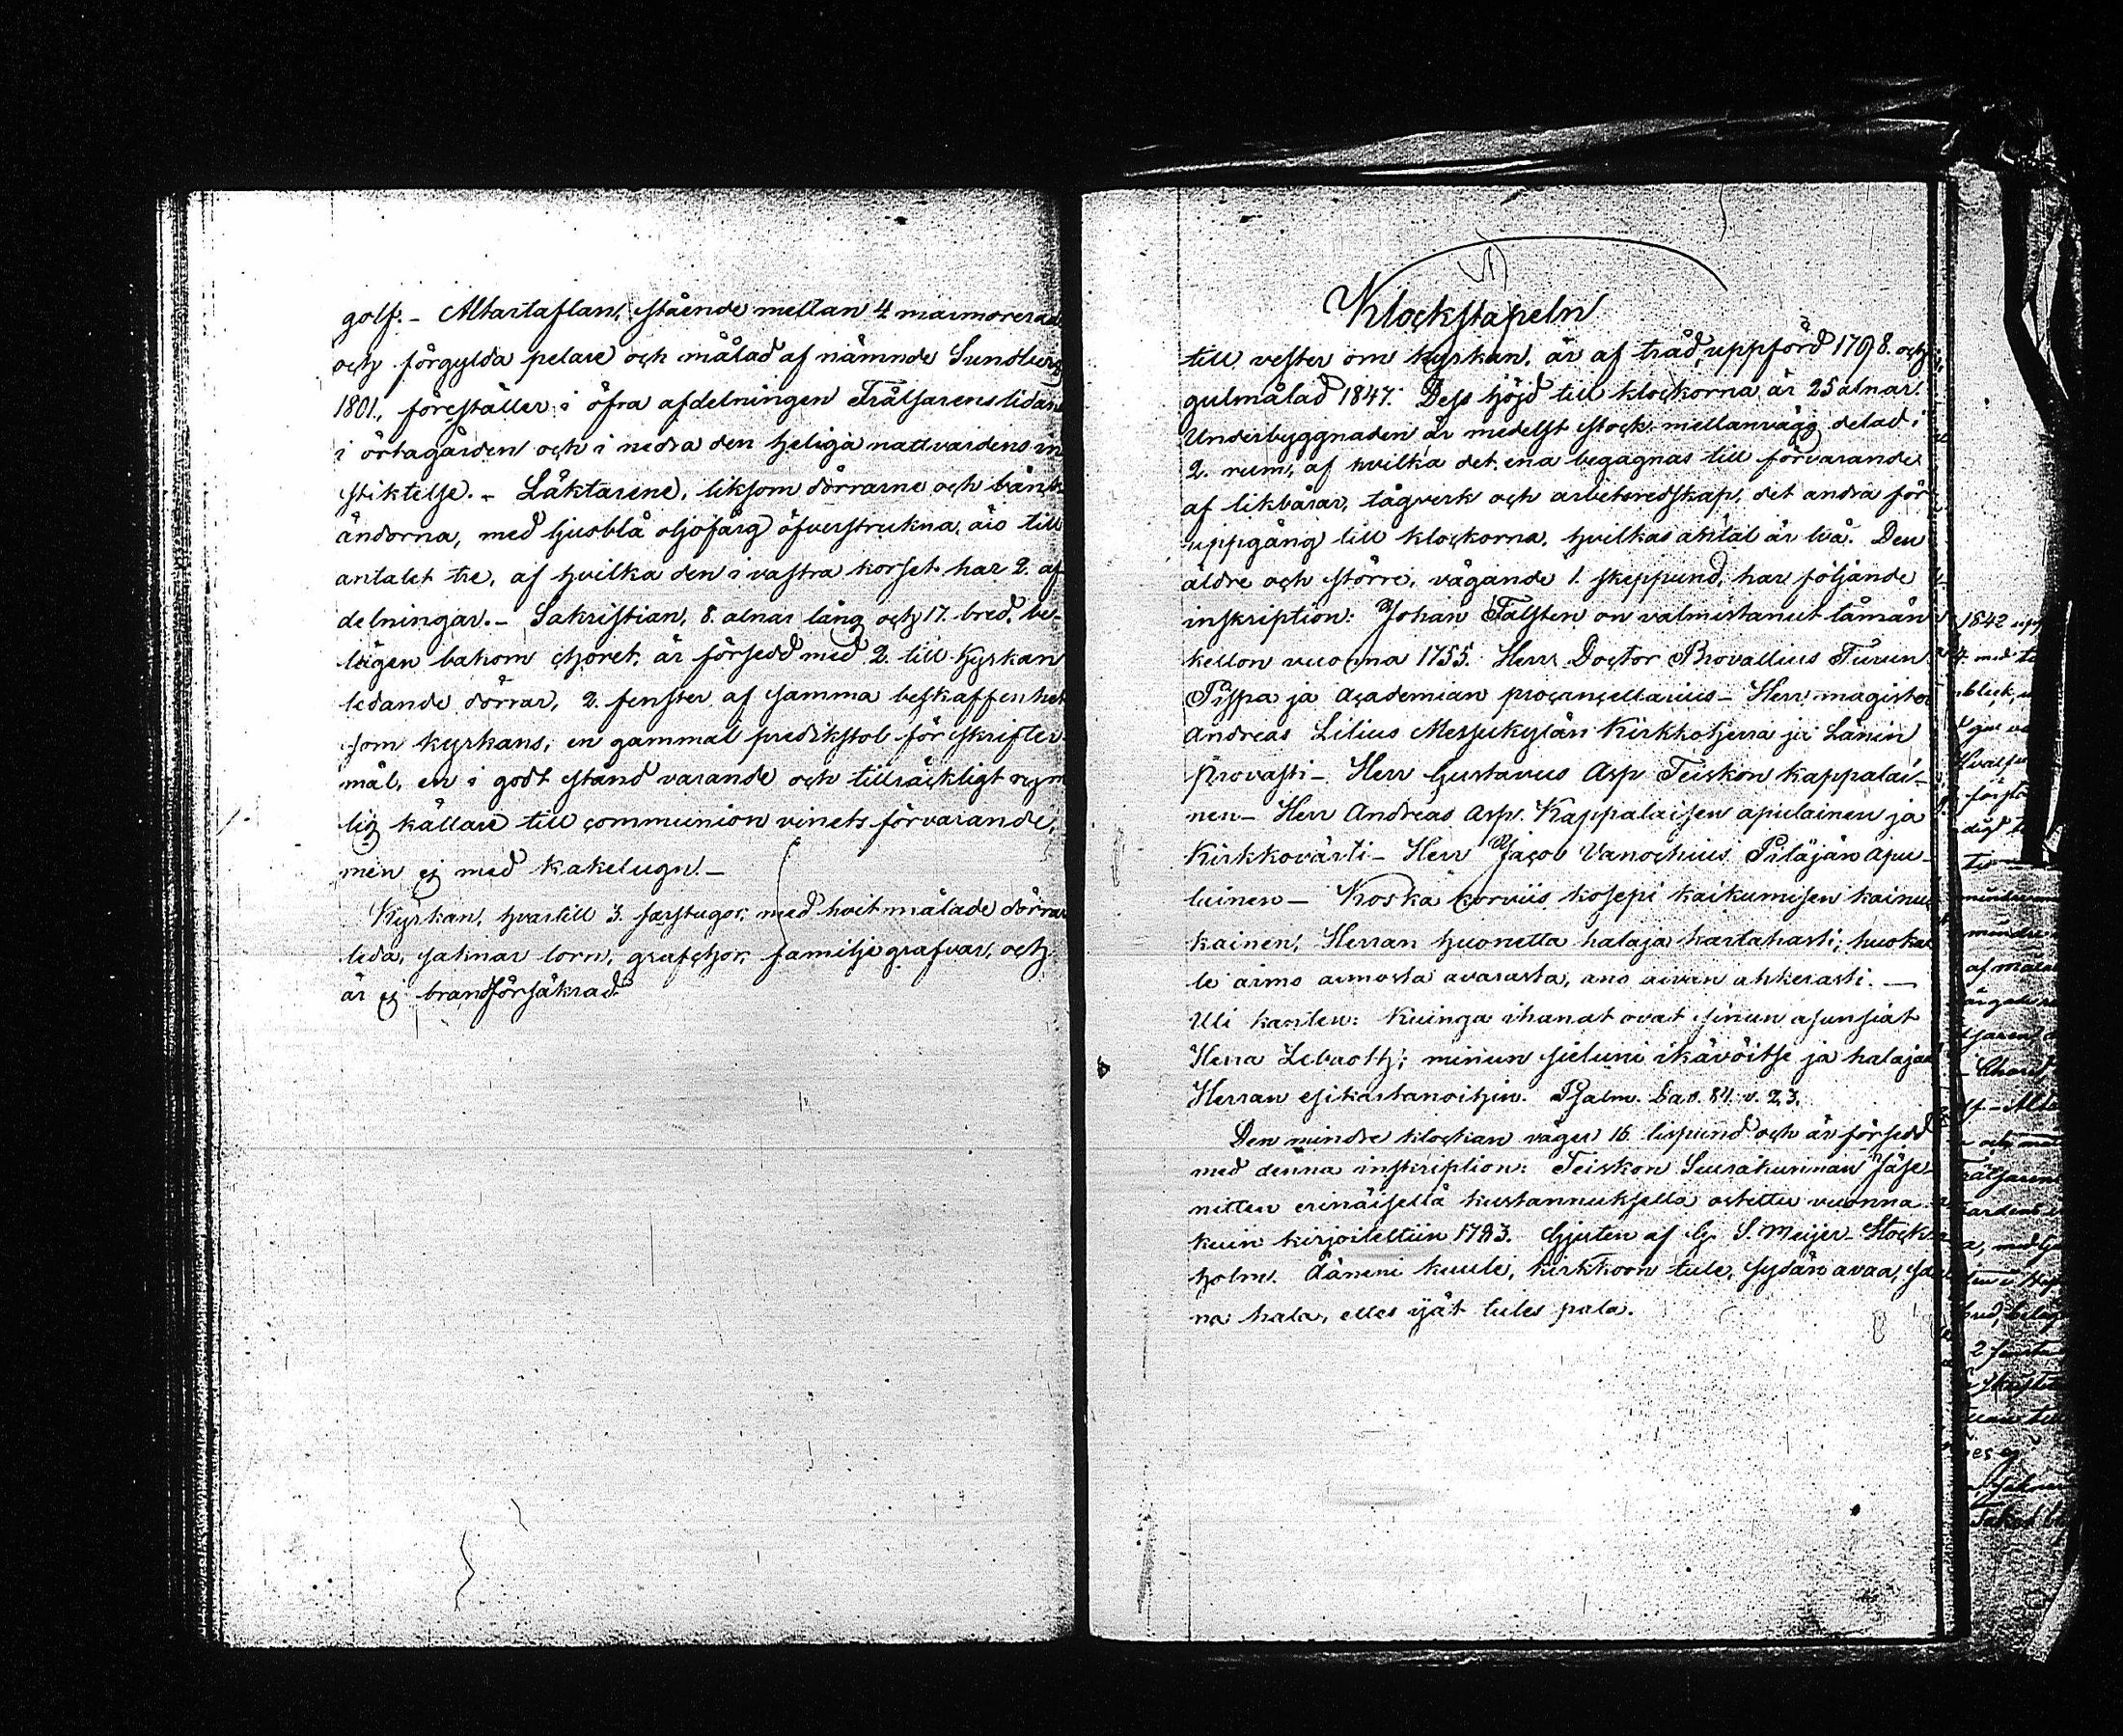 golf. - Altartaflan, stående mellan 4 marmorerade
och förgylda pelare och målad af nämnde Sundberg
1801, föreställer i öfra afdelningen Frälsarens lidan
i örtagården och i nedra den heliga nattvardens in
stiktelse. - Läktarene, liksom dörrarne och bänk
ändorna, med ljusblå oljofärg öfverstrukna, äro till
antalet tre, af hvilka den i vastra korset har 2. af
delningar. - Sakristian, 8. alnar lång och 17. bred, be-
lägen bakom choret, är försedd med 2. till kyrkan
ledande dörrar, 2. fenster af samma beskaffenhet
som kyrkans, en gammal predikstol för skrifter
mål, en i godt stånd varande och tillräckligt rym
lig källare till communion vinets förvarande,
men ej med kakelugn. -
Kyrkan, hvartill 3. farstugor, med hvitmålade dörrar
leda, saknar torn, grafchor, familje grafvar, och
är ej brandförsäkrad.
Klockstapeln
till vester om kyrkan, är af träd, uppförd 1798. och
gulmålad 1847. Dess höjd till klockorna är 25 alnar.
Underbyggnaden är medelst stock-mellanvägg delad i
2. rum, af hvilka det ena begagnas till förvarande
af likbårar, tågverk och arbetsredskap, det andra för
uppgång till klockorna, hvilkas antal är två. Den
äldre och större, vägande 1. skeppund, har följande
inskription: Johan Falsten on valmistanut tämän
kellon vuonna 1755. Herr Doctor Brovallius Turun
Pispa ja Academian procancellarius - Herr magister
Andreas Lilius Messukylän Kirkkoherra ja Länin
Provasti - Herr Gustavus Asp Teiskon kappalai-
nen - Herr Andreas Asp. Kappalaisen apulainen ja
Kirkkovärti - Herr Jacob Vanochius Pitäjän Apu-
lainen - Koska corviis kosepi kaikumisen kainu
kainen, Herran huonetta halaja hartahasti, huoka
le armo armosta avarasta, ano aivan ahkerasti. -
Uli kanten: Kuinga ihanat ovat sinun asunsiat
Herra Zebaoth; minun sieluni ikävöitse ja halajaa
Herran esikartanoihin. Psalm. Dav. 84. v. 2.3.
Den mindre klockan väger 16 lispund och är försedd
med denna inskription: Teiskon Seurakunnan Jäse-
nitten erinäisellä kustannuksella ostettu vuonna
kuin kirjoitettiin 1783. Gjuten af G. S. Meijer Stock-
holm. Ääneni kuule, kirkkoon tule, sydän avaa,
na hala, elles ijät tules pala.